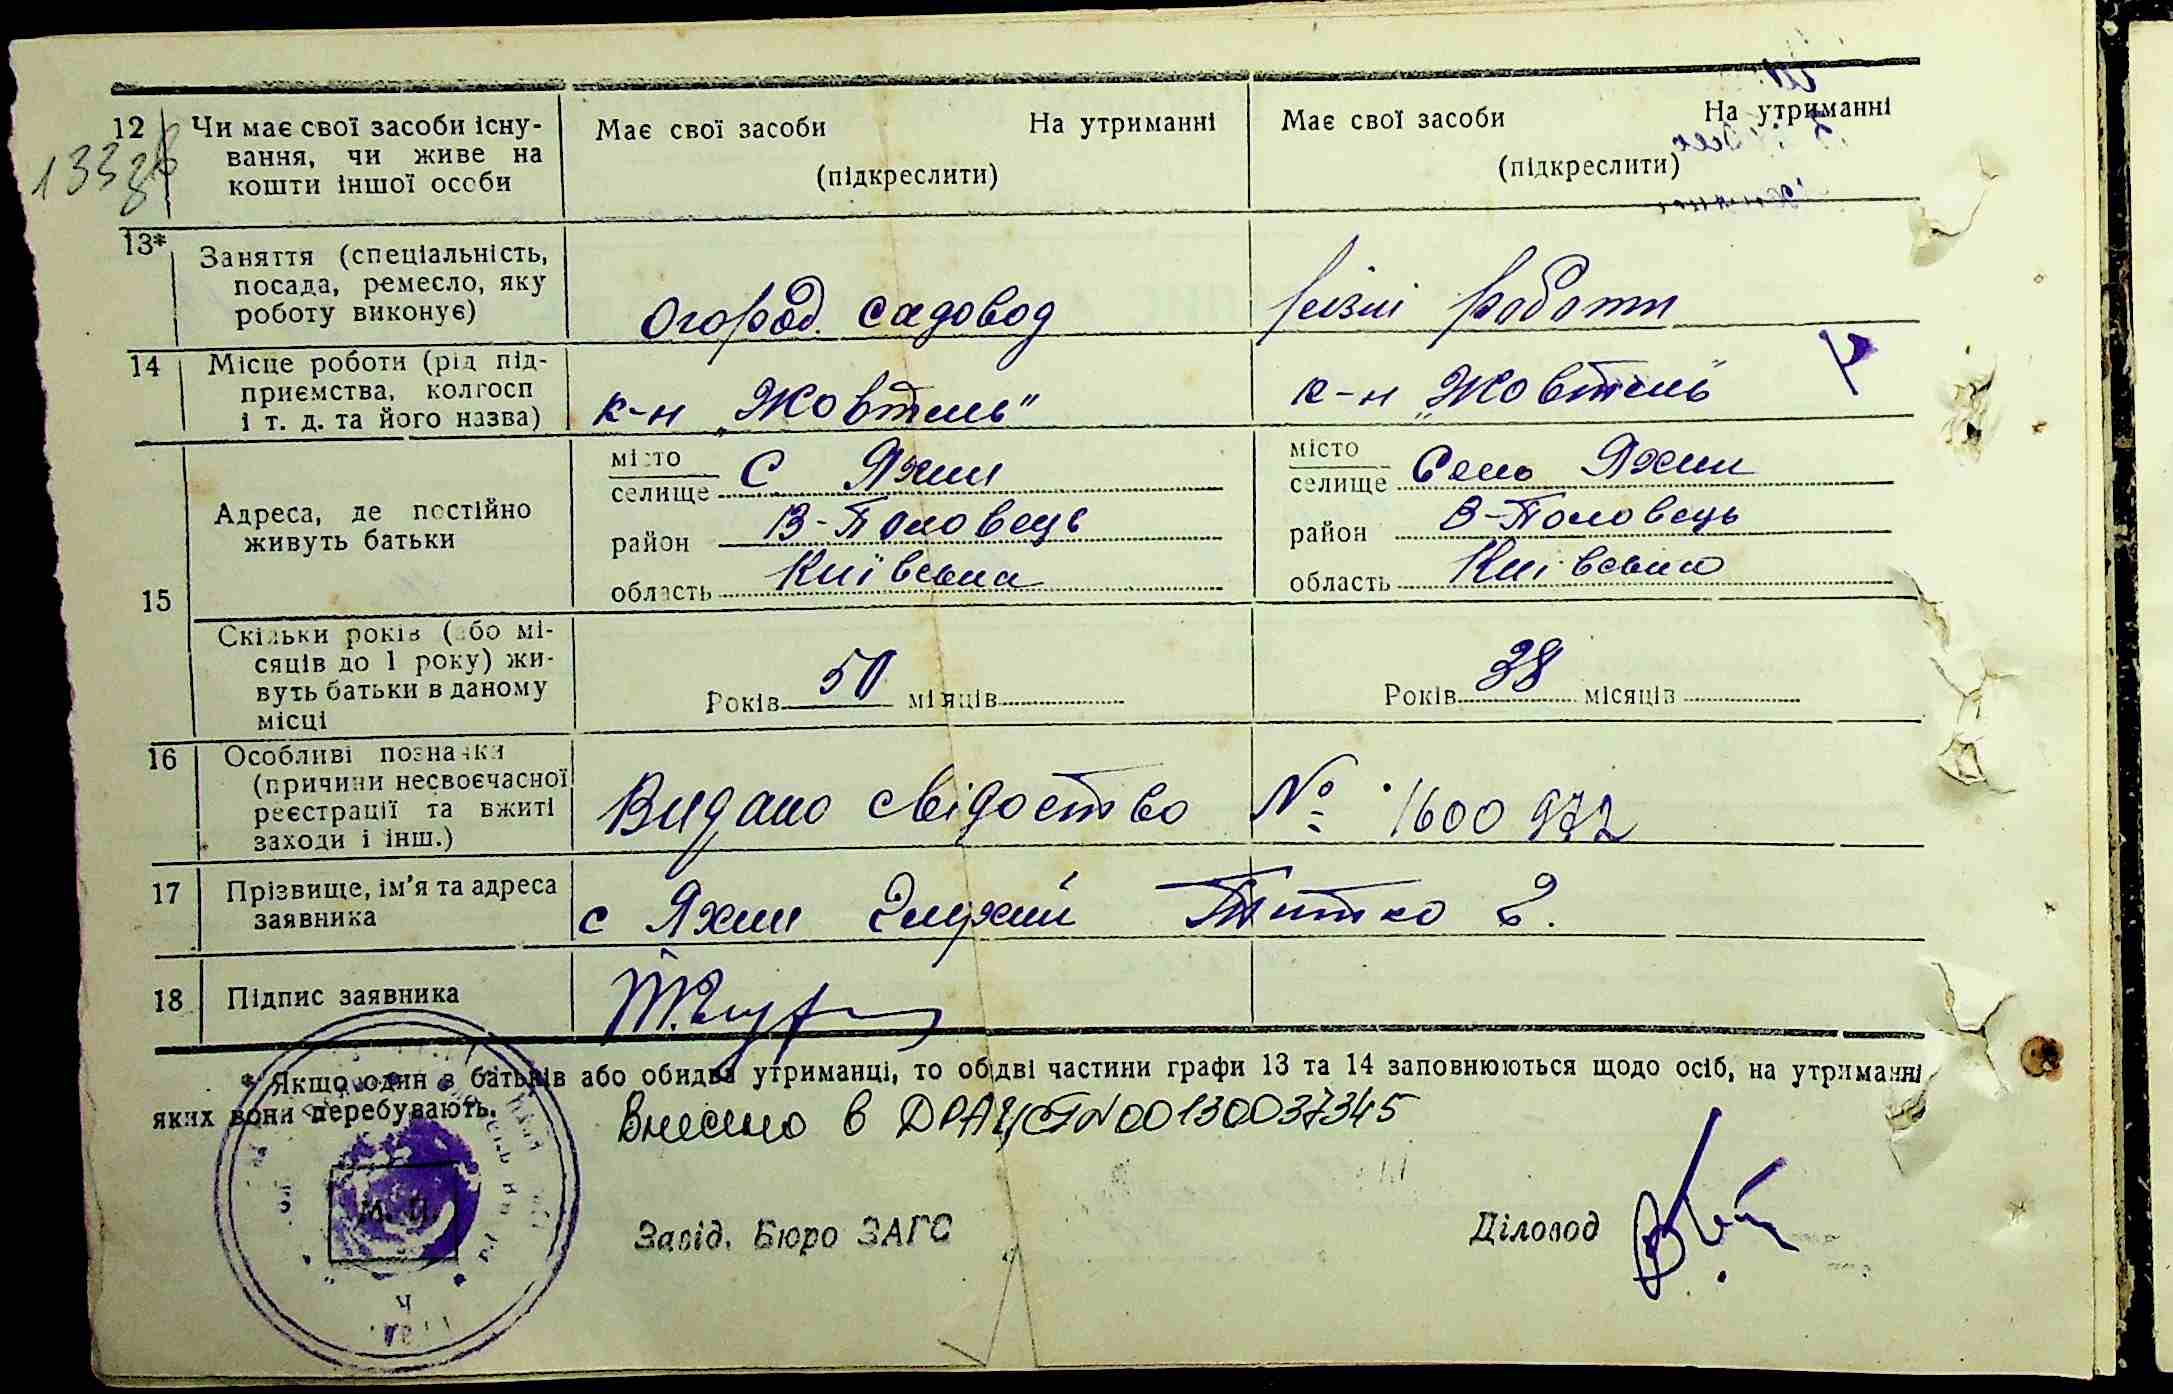 12
133зв
Чи має свої засоби існу-
вання, чи живе на
кошти іншої особи
Має свої засоби На утриманні
(підкреслити)
Має свої засоби На утриманні
(підкреслити)
13*
Заняття (спеціальність,
посада, ремесло, яку
роботу виконує)
Огород. садовод
різні работи
14
Місце роботи (рід під-
приємства, колгосп
і т. д. та його назва)
к-п „Жовтень"
к-п „Жовтень"
15
Адреса, де постійно
живуть батьки
місто
селище С Яхни
район В-Половець
область Київська
місто
селище Село Яхни
район В-Половець
область Київська
Скільки років (або мі-
сяців до 1 року) жи-
вуть батьки в даному
місці
Років 50 місяців
Років 38 місяців
16
Особливі позначки
(причини несвоєчасної
реєстрації та вжиті
заходи і інш.)
Видано свідоство № 1600972
17
Прізвище, ім'я та адреса
заявника
с Яхни Титко
18
Підпис заявника
* Якщо один з батьків або обидва утриманці, то обидві частини графи 13 та 14 заповнюються щодо осіб, на утриманні
яких вони перебувають.
Внесено в ДРАЦСГN00130037345
М. П.
Завід. Бюро ЗАГС
Діловод